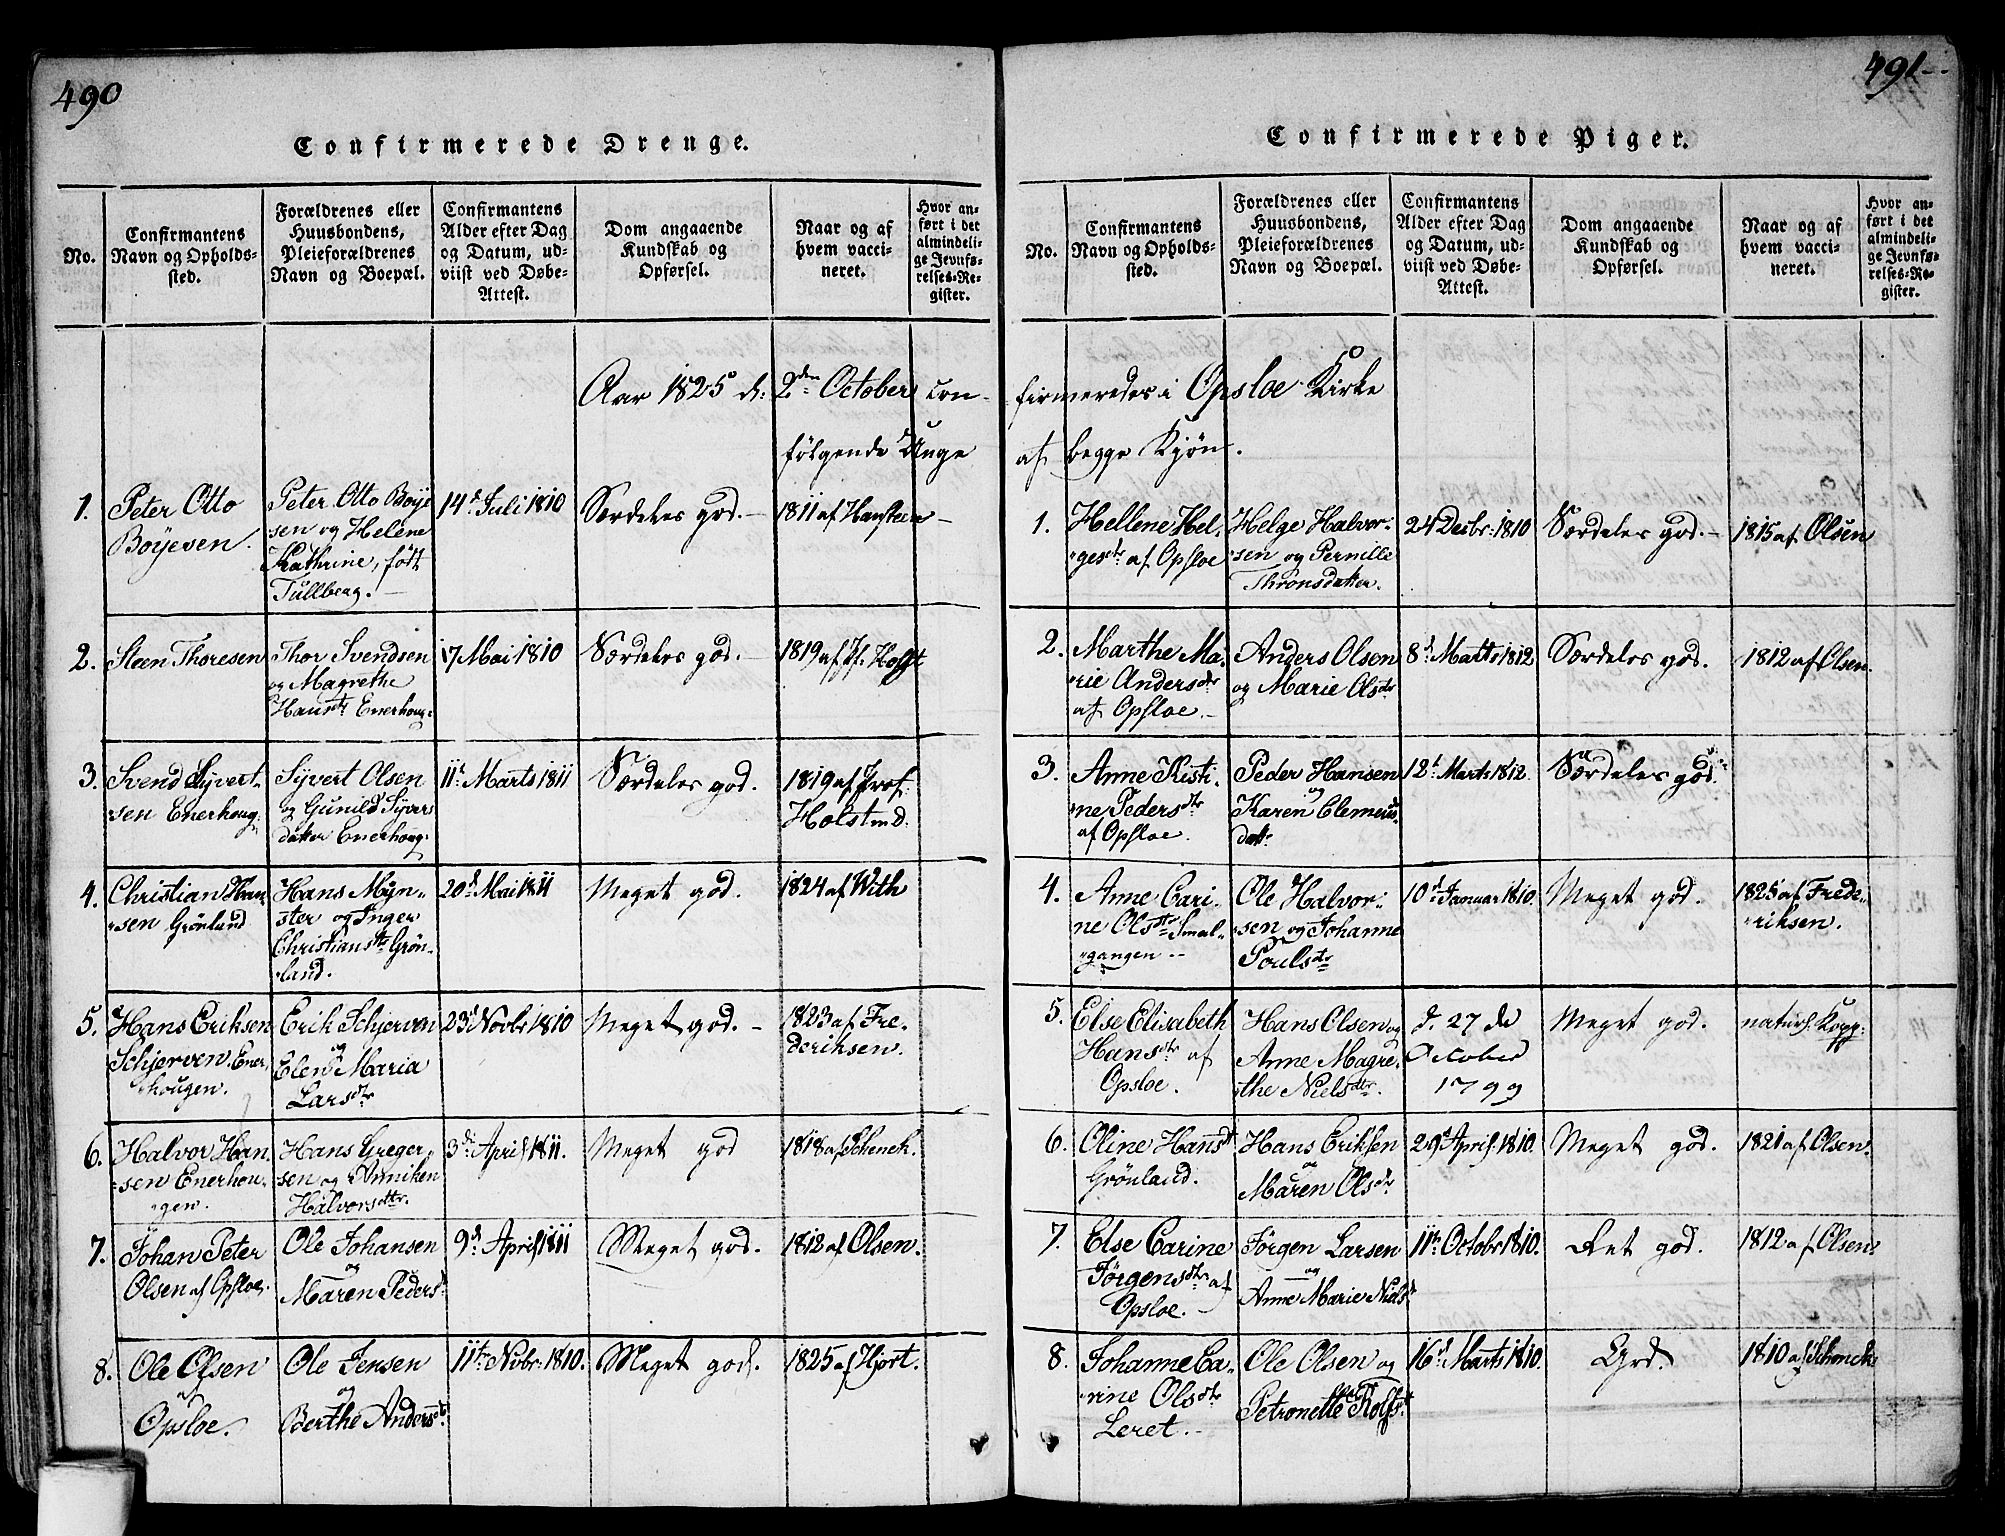 490
Confirmerede Drenge.
No.
Confirmantens
Navn og Opholds-
sted.
Forældrenes eller
Huusbondens,
Pleieforældrenes
Navn og Boepæl.
Confirmantens
Alder efter Dag
og Datum, ud-
viist ved Døbe-
Attest.
Dom angaaende
Kundskab og
Opførsel.
Naar og af
hvem vacci-
neret.
Hvor an-
ført i det
almindeli-
ge Jevnfø-
relses-Re-
gister.
Aar 1825 d: 2den October con-
følgende Unge
1.
Peter Otto
Boyesen.
Peter Otto Boye
sen og Helene
Kathrine, født
Tullberg.
14d Juli 1810
Særdeles god.
1811 af Hansteen
2.
Steen Thoresen
Thor Svendsen
og Magrethe
Hansdtr Enerhoug:
17 Mai 1810
Særdeles god.
1819 af Pf. Holst
3.
Svend Syvert-
sen Enerhoug:
Syvert Olsen
og Gunild Syvers
datter Enerhoug:
11t Marts 1811
Særdeles god.
1819 af Prof:
Holst
4.
Christian Han-
sen Grönland
Hans Myn-
ster og Inger
Christiansdtr Grön-
land.
20d Mai 1811
Meget god.
1824 af With
5.
Hans Eriksen
Schjerven Ener-
hougen.
Erik Schjerven
og
Elen Maria
Larsdtr
23d Novbr 1810
Meget god.
1823 af Fre-
deriksen.
6.
Halvor Han-
sen Enerhou-
gen.
Hans Greger-
sen og Anniken
Halvorsdtr.
3di April 1811.
Meget god
1818 af Schenck.
7.
Johan Peter
Olsen af Opsloe.
Ole Johansen
og
Maren Pedersd
9d April 1811
Meget god.
1812 af Olsen.
8.
Ole Olsen
af
Opsloe.
Ole Jensen
og
Berthe Andersdt
11te Nvbr: 1810.
Meget god.
1825 af Hjort.
491
Confirmerede Piger.
No.
Confirmantens
Navn og Opholds-
sted.
Forældrenes eller
Huusbondens,
Pleieforældrenes
Navn og Boepæl.
Confirmantens
Alder efter Dag
og Datum, ud-
viist ved Døbe-
Attest.
Dom angaaende
Kundskab og
Opførsel.
Naar og af
hvem vacci-
neret.
Hvor an-
ført i det
almindeli-
ge Jevnfø-
relses-Re-
gister.
firmeredes i Opsloe Kirke
af begge Kjön.
1.
Hellene Hel-
gesdtr af Opsloe
Helge Halvor-
sen og Pernille
Thronsdatter.
24 Decbr: 1810
Særdeles god.
1815 af Olsen
2.
Marthe Ma-
rie Andersdtr
af Opsloe.
Anders Olsen
og Marie Olsdtr
8d Marts 1812
Særdeles god.
1812 af Olsen.
3.
Anne Kisti-
ne Pedersdtr
af Opsloe.
Peder Hansen
og
Karen Clemens
datr
12t Marts 1812.
Særdeles god.
4.
Anne Cari-
ne Olsdtr Smal-
gangen
Ole Halvor-
sen og Johanne
Poulsdtr
10d Januar 1810.
Meget god.
1825 af Frede-
riksen.
5.
Else Elisabeth
Hansdtr af
Opsloe.
Hans Olsen og
Anne Magre-
the Nielsdtr.
d. 27 de
October
1799
Meget god.
naturl: Kopp:
6.
Oline Hansdt
Grönland.
Hans Eriksen
og
Maren Olsdtr
29d April 1810.
Meget god.
1821 af Olsen.
7.
Else Carine
Jörgensdtr af
Opsloe.
Jörgen Larsen
og
Anne Marie Nielsd
11te Octobr 1810.
Ret god.
1812 af Olsen
8.
Johanne Ca-
rine Olsdtr
Leret.
Ole Olsen og
Petronelle Rolfsdt
16d Marts 1810.
God.
1810 af Schenck